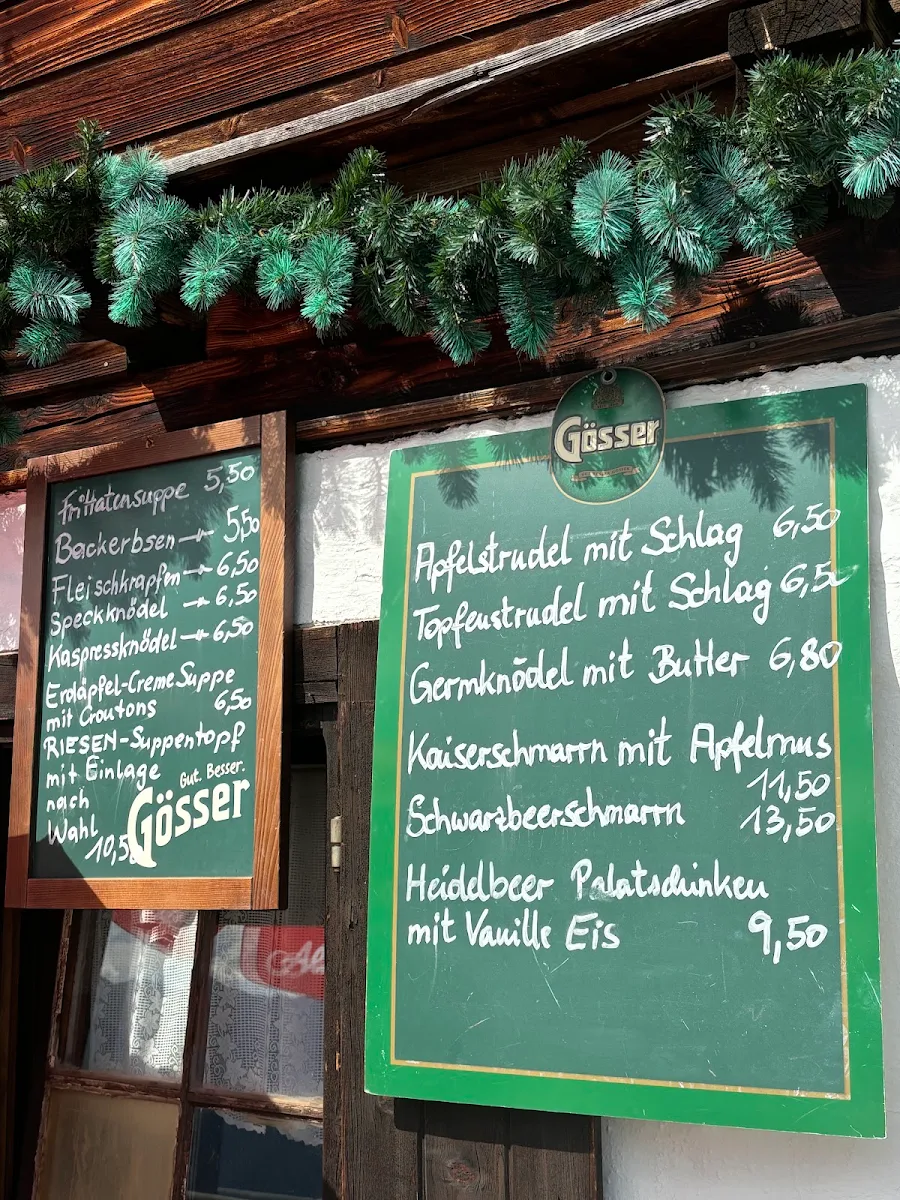 Frittatensuppe 5,50
Backerbsen → 5,50
Fleischkrapfen → 6,50
Speckknödel → 6,50
Kaspressknödel → 6,50
Erdäpfel-Creme Suppe
mit Croutons 6,50
RIESEN-Suppentopf
mit Einlage
nach
Wahl
10,50
Gut. Besser.
Gösser
Gösser
Apfelstrudel mit Schlag 6,50
Topfenstrudel mit Schlag 6,50
Germknödel mit Butter 6,80
Kaiserschmarrn mit Apfelmus
11,50
Schwarzbeerschmarrn 13,50
Heidelbeer Palatschinken
mit Vanille Eis 9,50